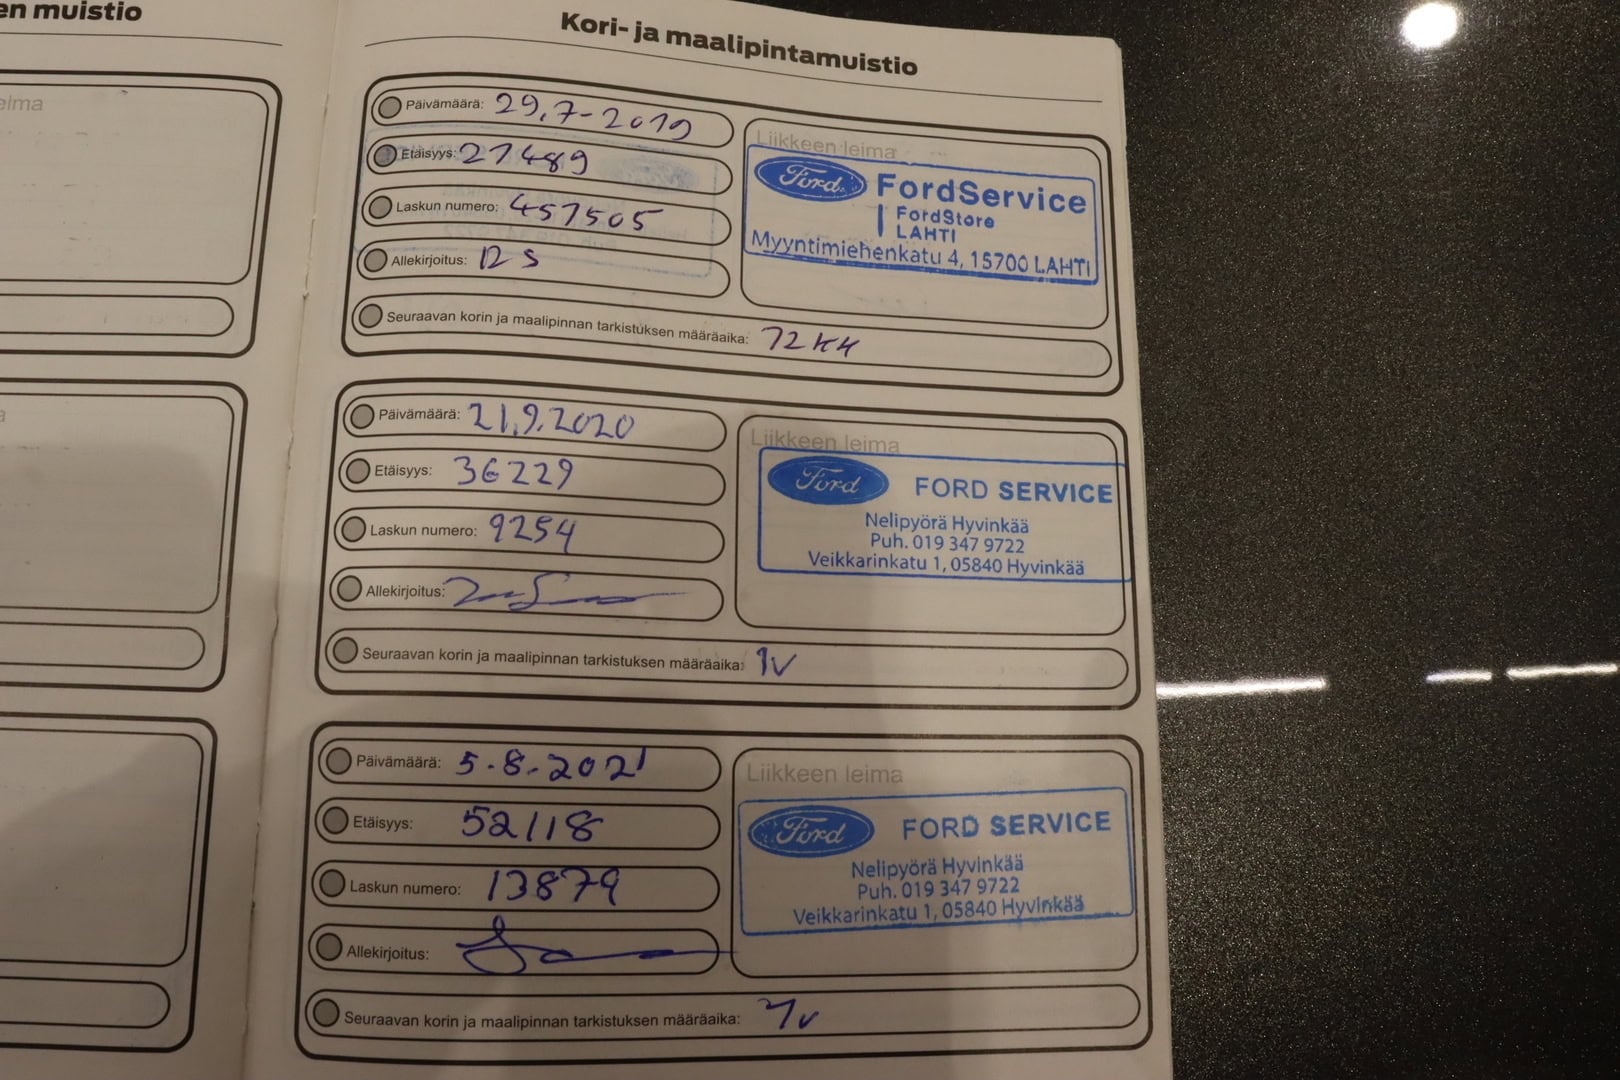 en muistio
eima
a
Kori- ja maalipintamuistio
Päivämäärä: 29.7-2019
Etäisyys: 21489
Laskun numero: 457505
Allekirjoitus:
Liikkeen leima
Ford FordService
FordStore
LAHTI
Myyntimiehenkatu 4, 15700 LAHTI
Seuraavan korin ja maalipinnan tarkistuksen määräaika: 12 KK
Päivämäärä: 21.9.2020
Etäisyys: 36229
Laskun numero: 9254
Allekirjoitus:
Liikkeen leima
Ford FORD SERVICE
Nelipyörä Hyvinkää
Puh. 019 347 9722
Veikkarinkatu 1, 05840 Hyvinkää
Seuraavan korin ja maalipinnan tarkistuksen määräaika: 1v
Päivämäärä: 5.8.2021
Etäisyys: 52118
Laskun numero: 13879
Allekirjoitus:
Liikkeen leima
Ford FORD SERVICE
Nelipyörä Hyvinkää
Puh. 019 347 9722
Veikkarinkatu 1, 05840 Hyvinkää
Seuraavan korin ja maalipinnan tarkistuksen määräaika: 1v